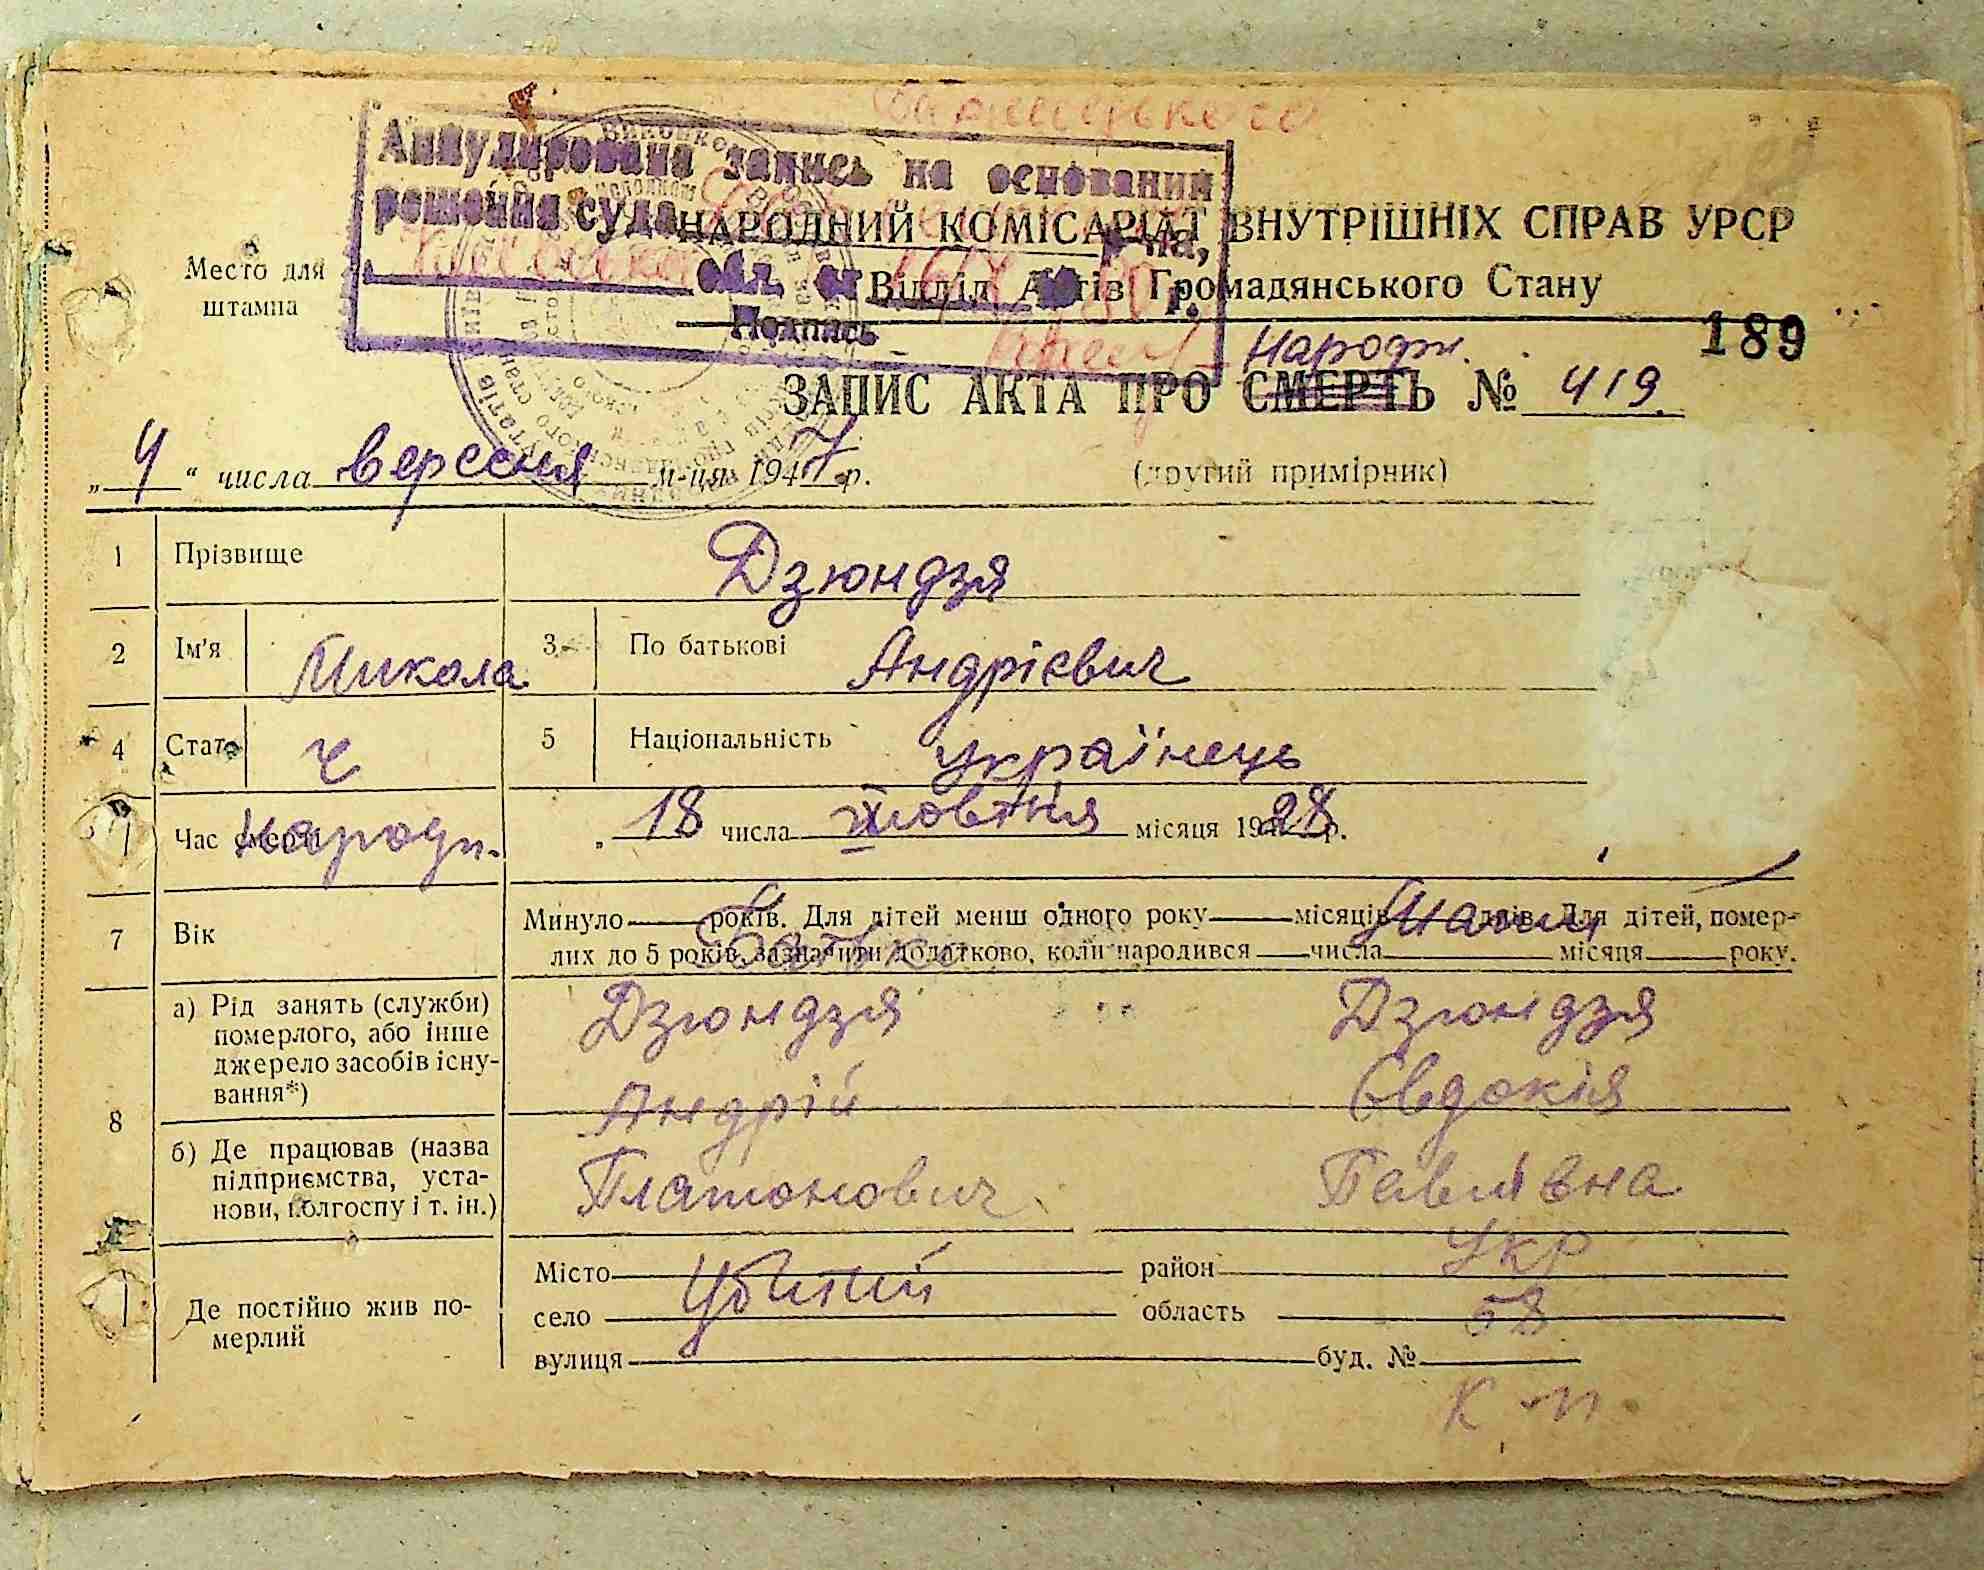 Баришевського
Аннулирована запись на основании
решения суда
р-на,
обл. от 80 г.
Подпись
НАРОДНИЙ КОМІСАРІАТ ВНУТРІШНІХ СПРАВ УРСР
Место для
штампа
Відділ Актів Громадянського Стану
189
Народж.
ЗАПИС АКТА ПРО СМЕРТЬ № 419.
„4“ числа вересня м-ця 1947 р. (другий примірник)
1 Прізвище Дзюндзя
2 Ім'я Микола 3 По батькові Андрієвич
4 Стать ч 5 Національність українець
Час смерти народж. „18 числа жовтня місяця 1928 р.
7 Вік Минуло років. Для дітей менш одного року місяців днів. Для дітей, помер-
лих до 5 років, зазначити додатково, коли народився числа місяця року.
Батько Мати
8 а) Рід занять (служби)
померлого, або інше
джерело засобів існу-
вання*)
Дзюндзя Дзюндзя
Андрій Євдокія
б) Де працював (назва
підприємства, уста-
нови, колгоспу і т. ін.)
Платонович Павлівна
Укр
Де постійно жив по-
мерлий
Місто район
Убитий
село область 58
вулиця буд. №
к-п